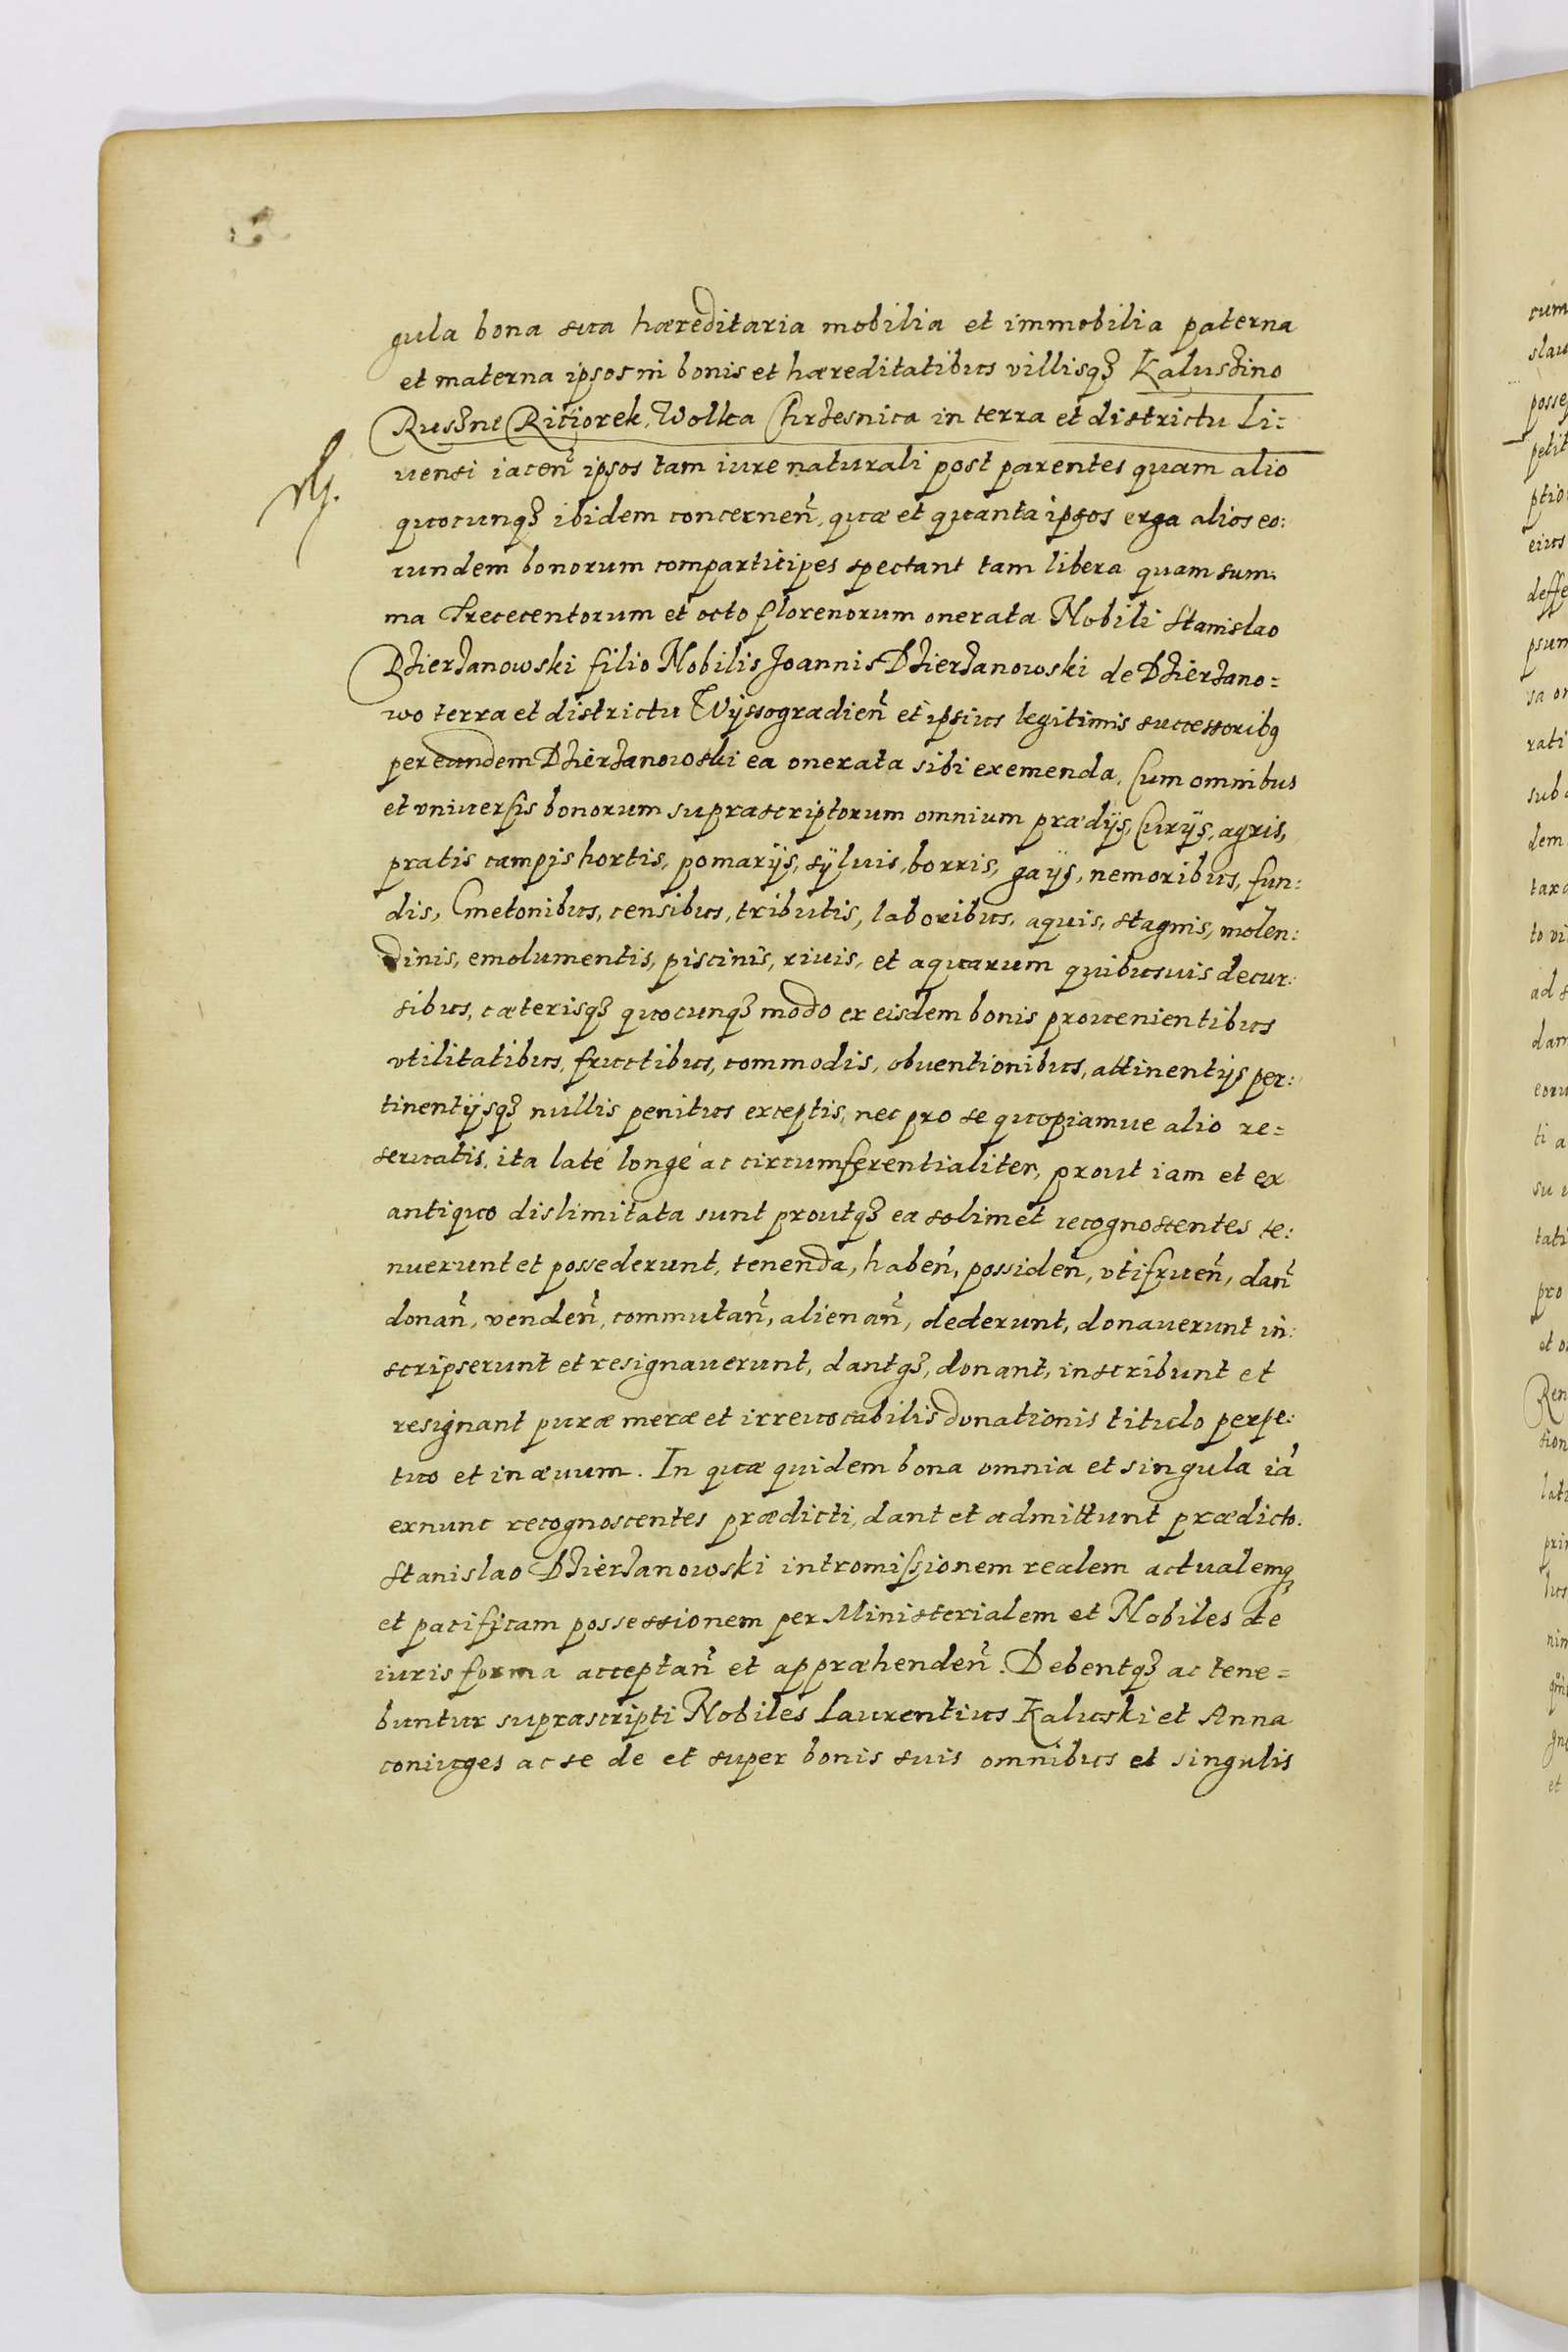 gula bona sua hæreditaria mobilia et immobilia paterna
et materna ipsos in bonis et hæreditatibus villisq3 Kaluszino
Ruszne Riciorek, Wolka Chrzesnica in terra et districtu Li:
uensi iaceñ ipsos tam iure naturali post parentes quam alio
quocunq3 ibidem concerneñ, quæ et quanta ipsos erga alios eo:
rundem bonorum comparticipes spectant tam libera quam sum:
ma Trececentorum et octo florenorum onerata Nobili Stanislao
Dzierzanowski filio Nobilis Joannis Dzierzanowski de Dzierzano=
wo terra et districtu Wyssogradieñ et ipsius legitimis successorib9
per eundem Dzierzanowski ea onerata sibi exemenda, Cum omnibus
et vniuersis bonorum suprascriptorum omnium prædijs, Curijs, agris,
pratis campis hortis, pomarijs, sÿluis, borris, gaijs, nemoribus, fun:
dis, Cmetonibus, censibus, tributis, laboribus, aquis, stagnis, molen:
dinis, emolumentis, piscinis, riuis, et aquarum quibusuis decur:
sibus, cæterisq3 quocunq3 modo ex eisdem bonis prouenientibus
vtilitatibus, fructibus, commodis, obuentionibus, attinentijs per:
tinentijsq3 nullis penitus exceptis, nec pro se quopiamue alio re=
seruatis, ita laté longé ac circumferentialiter, prout iam et ex
antiquo dislimitata sunt proutq3 ea solimet recognoscentes te:
nuerunt et possederunt, tenenda, habeñ, possideñ, vtifrueñ, dañ
donañ, vendeñ, commutañ, alienañ, dederunt, donauerunt in:
scripserunt et resignauerunt, dantq3, donant, inscribunt et
resignant puræ meræ et irreuocabilis donationis titulo perpe:
tuo et in æuum. In quæ quidem bona omnia et singula iã
exnunc recognoscentes prædicti, dant et admittunt prædicto.
Stanislao Dzierzanowski intromissionem realem actualemq3
et pacificam possessionem per Ministerialem et Nobiles de
iuris forma acceptañ et appræhendeñ. Debentq3 ac tene=
buntur suprascripti Nobiles Laurentius Kaluski et Anna
coniuges ac se de et super bonis suis omnibus et singulis